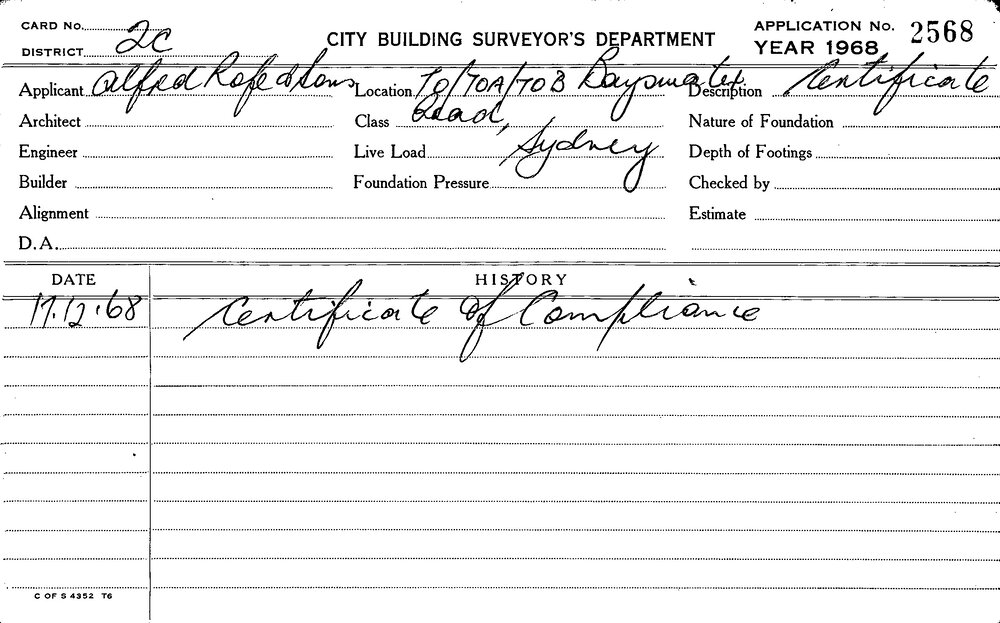 CARD No.
DISTRICT 2C
CITY BUILDING SURVEYOR'S DEPARTMENT
APPLICATION No. 2568
YEAR 1968
Applicant Alfred Rofe & Sons
Location 70/70A/70B Bayswater
Road,
Sydney
Description Certificate
Architect
Class
Nature of Foundation
Engineer
Live Load
Depth of Footings
Builder
Foundation Pressure
Checked by
Alignment
Estimate
D.A.
DATE HISTORY
17.12.68 Certificate of Compliance
C OF S 4352 T6